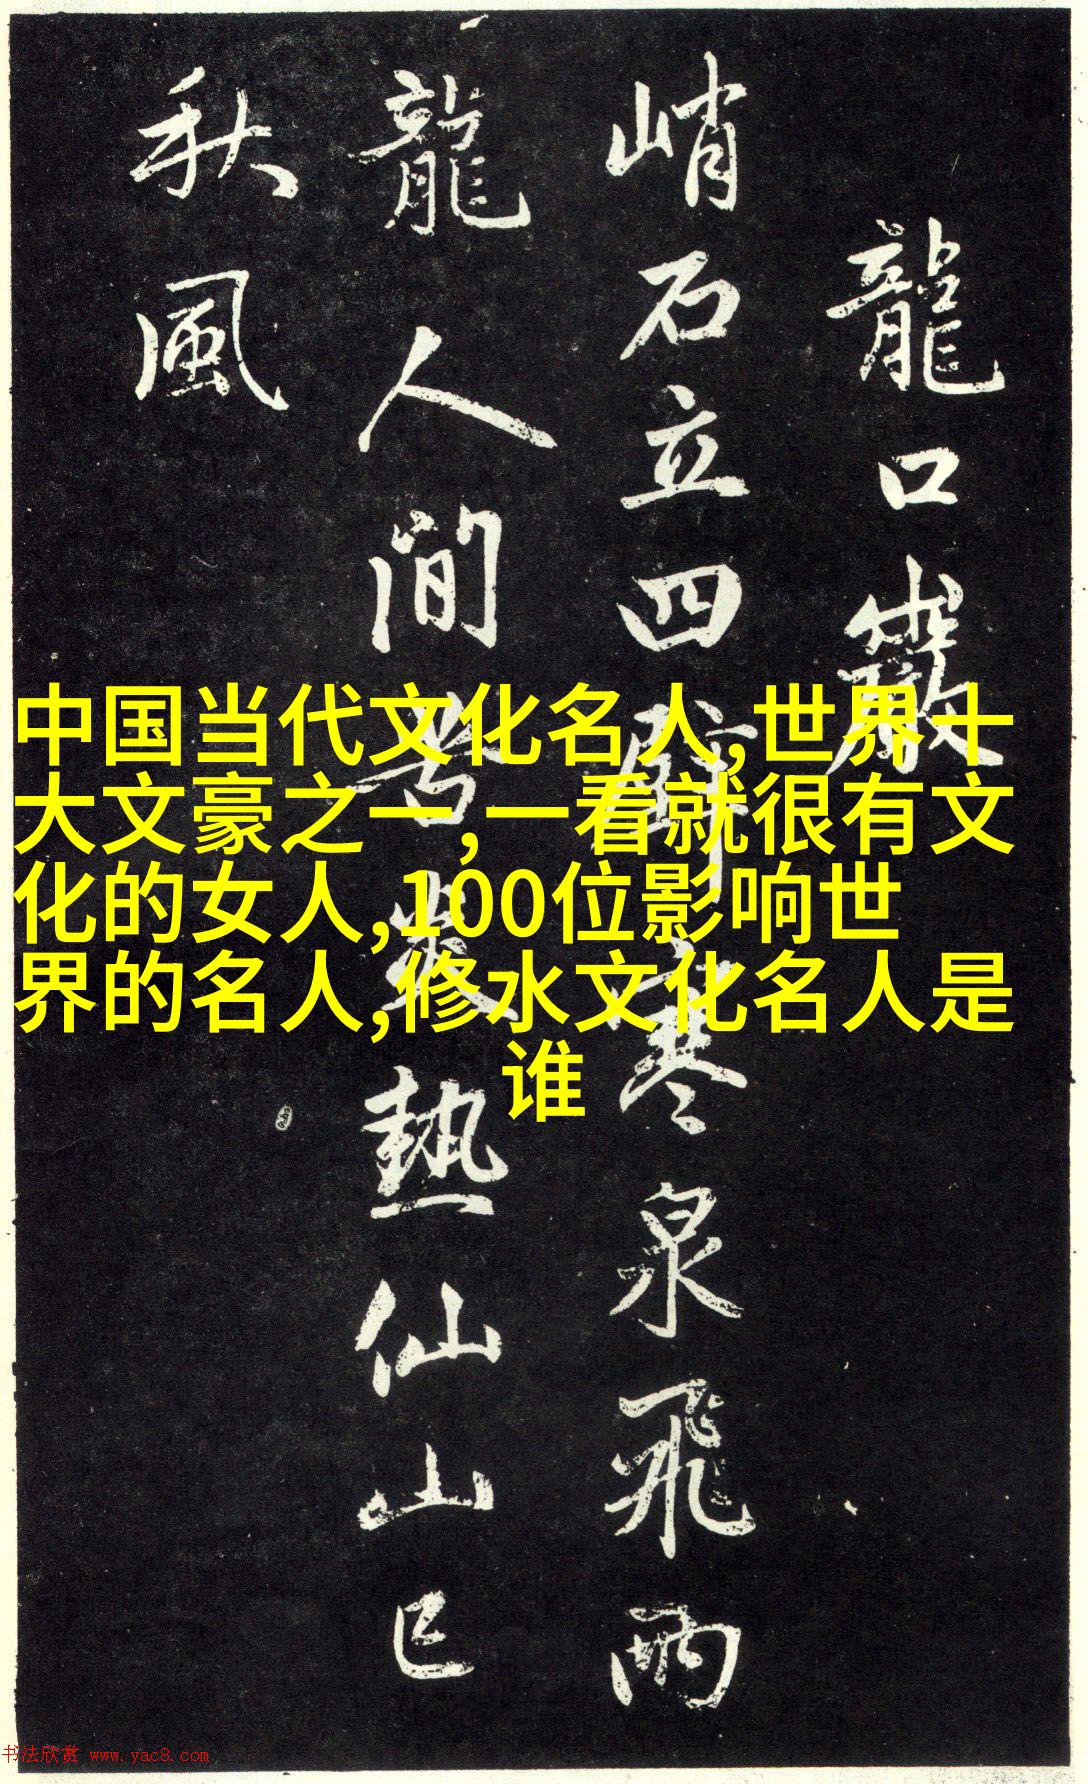 龍口巖
峭石立四壁寒泉飛兩
龍人間苦炎熱仙山已
秋風
中国当代文化名人,世界十
大文豪之一,一看就很有文
化的女人,100位影响世
界的名人,修水文化名人是
谁
书法欣赏 www.yac8.com